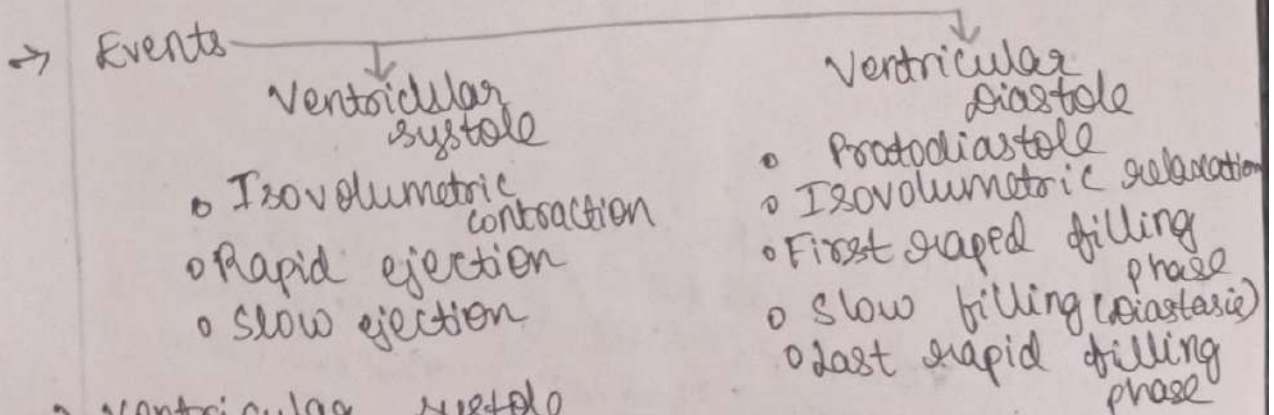 → Events
Ventricular
systole
• Isovolumetric
contraction
• Rapid ejection
• Slow ejection
Ventricular
Diastole
• Protodiastole
• Isovolumetric relaxation
• First raped filling
phase
• Slow filling (Diastasis)
• Last rapid filling
phase
ventricular systole